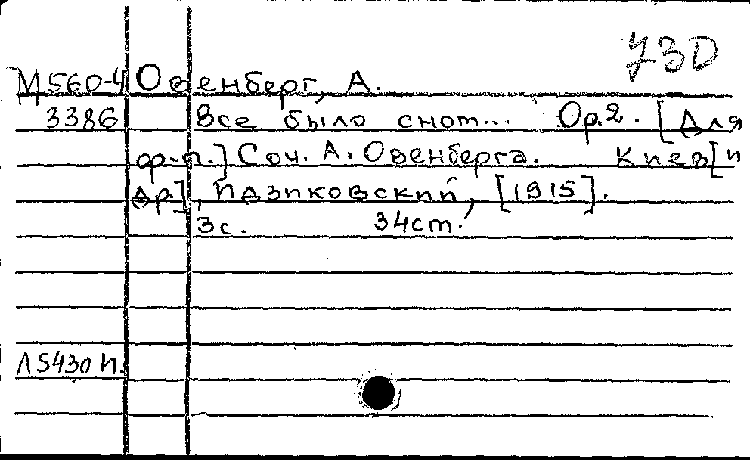 УЗО
М560-4 Овенберг, А.
3386 Все было сном... Op.2. [Для
ф-п.] Соч. А. Овенберга. Киев [и
др], Идзиковский, [1915].
3с. 34см.
Л5430 н.